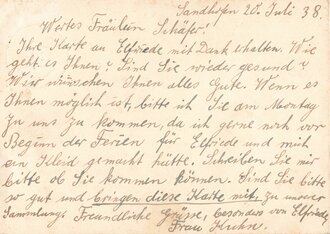 Sandhofen 20. Juli 38.
Wertes Fräulein Schäfer!
Ihre Karte an Elfriede mit Dank erhalten. Wie
geht es Ihnen? Sind Sie wieder gesund?
Wir wünschen Ihnen alles Gute. Wenn es
Ihnen möglich ist, bitte ich Sie am Montag
zu uns zu kommen, da ich gerne noch vor
Beginn der Ferien für Elfriede und mich
ein Kleid gemacht hätte. Schreiben Sie mir
bitte ob Sie kommen können. Sind Sie bitte
so gut und bringen diese Karte mit, zu unserer
Sammlung. Freundliche Grüsse, besonders von Elfriede,
Frau Kuhn.